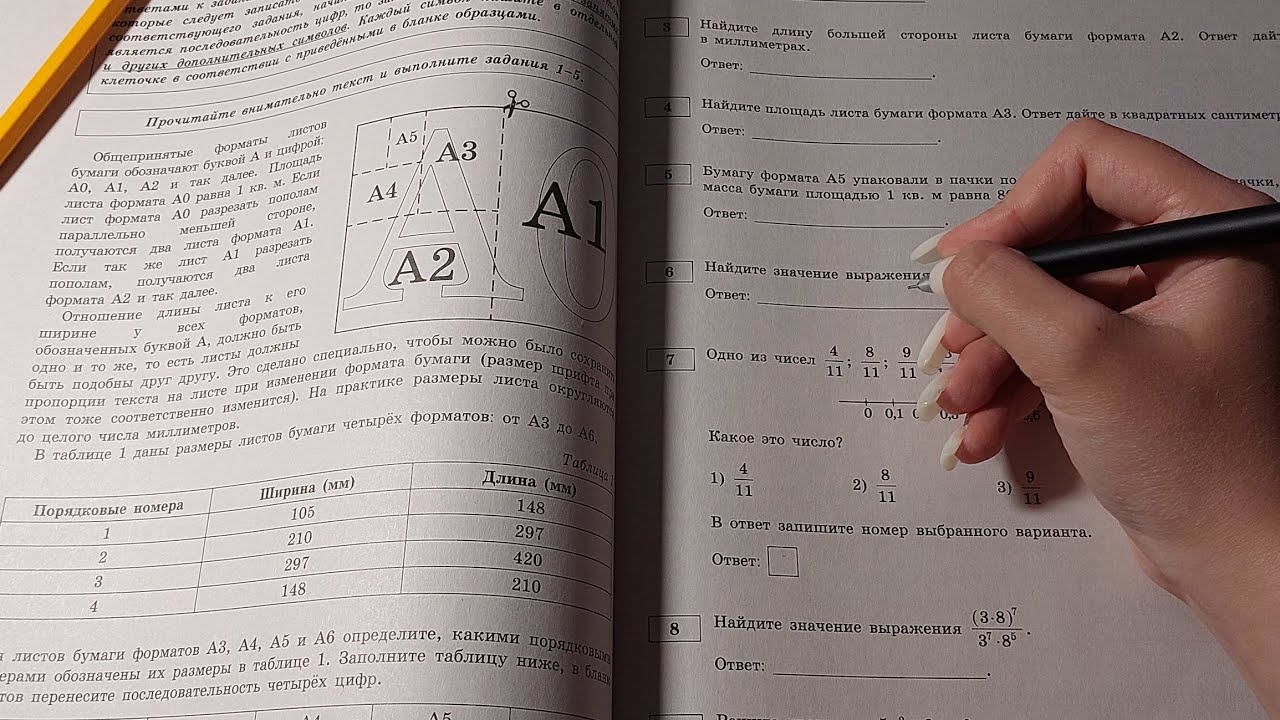 ответами к зада
которые следует записать
соответствующего задания, нача
является последовательность цифр, то за
и других дополнительных символов. Каждый символ в отдельн
клеточке в соответствии с приведёнными в бланке образцами.
Прочитайте внимательно текст и выполните задания 1–5.
Общепринятые форматы листов
бумаги обозначают буквой А и цифрой:
А0, А1, А2 и так далее. Площадь
листа формата А0 равна 1 кв. м. Если
лист формата А0 разрезать пополам
параллельно меньшей стороне,
получаются два листа формата А1.
Если так же лист А1 разрезать
пополам, получаются два листа
формата А2 и так далее.
А5
А3
А4
А1
А2
Отношение длины листа к его
ширине у всех форматов,
обозначенных буквой А, должно быть
одно и то же, то есть листы должны
быть подобны друг другу. Это сделано специально, чтобы можно было сохранить
пропорции текста на листе при изменении формата бумаги (размер шрифта при
этом тоже соответственно изменится). На практике размеры листа округляются
до целого числа миллиметров.
В таблице 1 даны размеры листов бумаги четырёх форматов: от А3 до А6.
Таблица 1
Порядковые номера Ширина (мм) Длина (мм)
1 105 148
2 210 297
3 297 420
4 148 210
я листов бумаги форматов А3, А4, А5 и А6 определите, какими порядковыми
ерами обозначены их размеры в таблице 1. Заполните таблицу ниже, в бланк
тов перенесите последовательность четырёх цифр.
А4 А5
3 Найдите длину большей стороны листа бумаги формата А2. Ответ дайт
в миллиметрах.
Ответ: .
4 Найдите площадь листа бумаги формата А3. Ответ дайте в квадратных сантиметр
Ответ: .
5 Бумагу формата А5 упаковали в пачки по ачки,
масса бумаги площадью 1 кв. м равна 8
Ответ: .
6 Найдите значение выражения
Ответ:
7 Одно из чисел 4/11; 8/11; 9/11
0 0,1
Какое это число?
1) 4/11 2) 8/11 3) 9/11
В ответ запишите номер выбранного варианта.
Ответ:
8 Найдите значение выражения (3·8)⁷/3⁷·8⁵.
Ответ: .